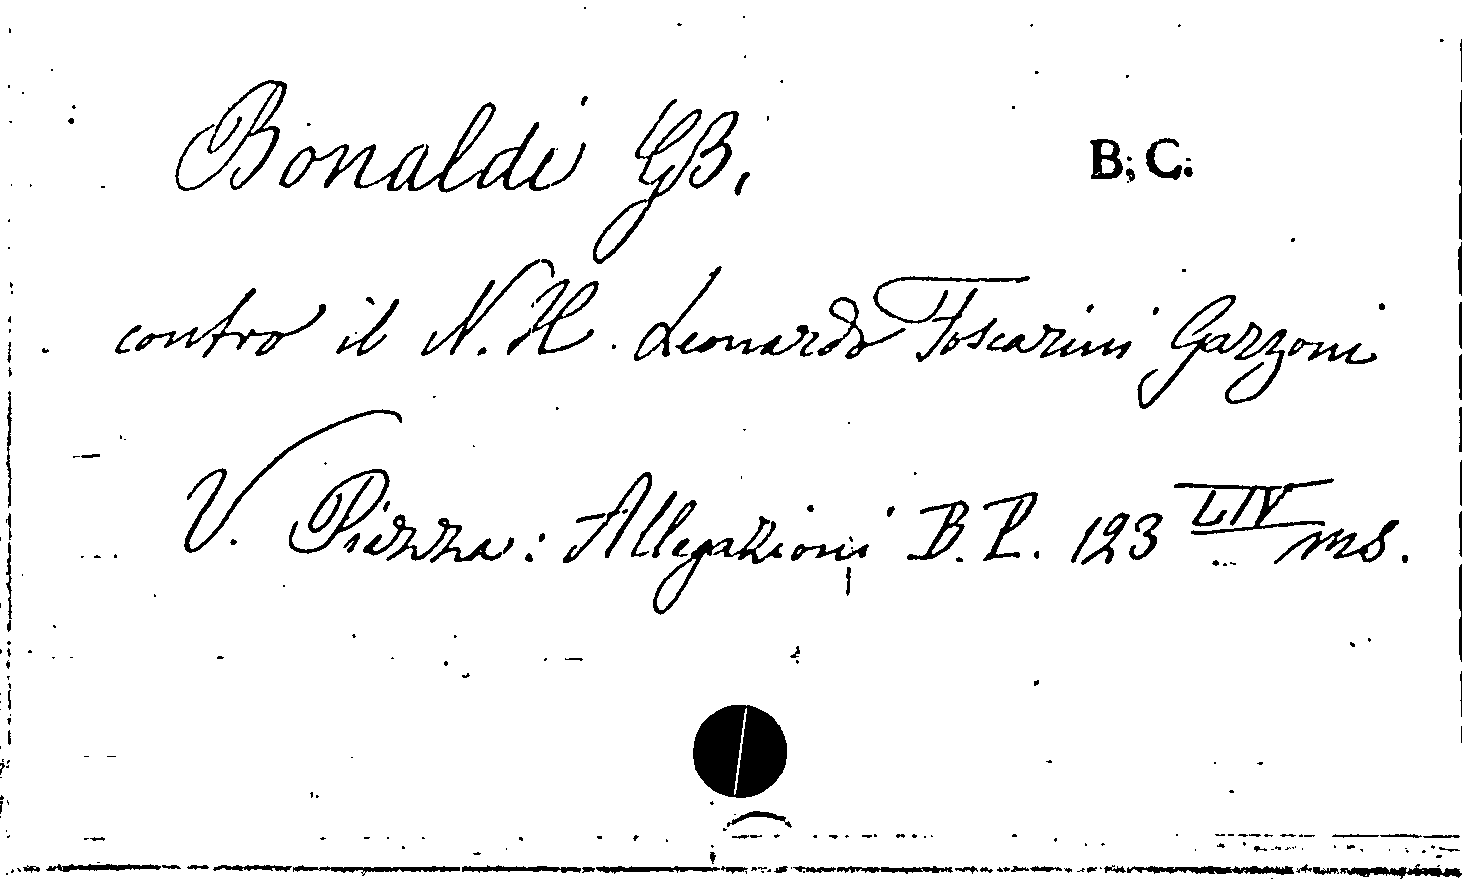 Bonaldi GB. B. C.
contro il N. H. Leonardo Foscarini Garzoni
V. Piazza: Allegazioni B. P. 123 LIV ms.